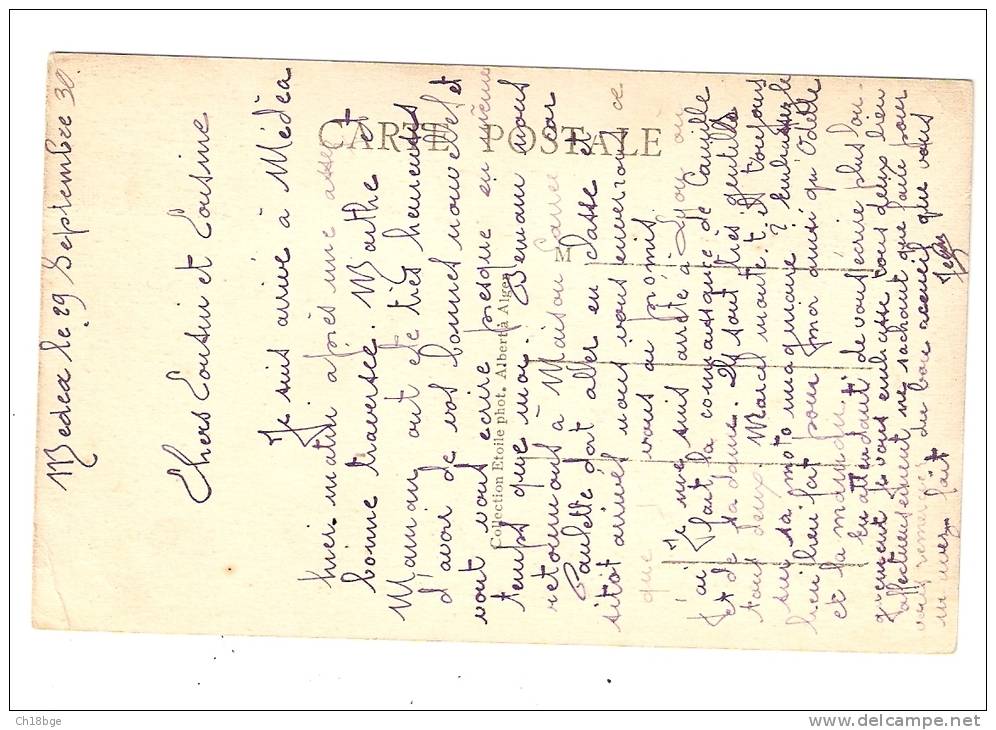 Medea le 29 Septembre 30.
Chers Cousin et Cousine
Je suis arrivé à Médèa
hier matin après une assez
bonne traversée. Marthe et
Maman ont ete très heureuses
d'avoir de vos bonnes nouvelles et
vont vous ecrire presque en même
temps que moi. Demain nous
retournons à Maison Carrée car
Paulette doit aller en classe et
sitot arrivés nous vous enverrons ce
que vous ai promis.
Je me suis arrété à Lyon ou
j'ai fait la connaissance de Camille
et de sa dame. Ils sont très gentils
tous deux. Marcel monte t'il toujours
sur sa moto magnifique ? embrassez le
bien fort pour moi ainsi qu'Odette
et la
En attendant de vous ecrire plus lon-
guement je vous embrasse tous deux bien
affectueusement ne sachant que faire pour
vous remercier du bon accueil que vous
m'avez fait
Jean
CARTE POSTALE
M
Collection Etoile phot. Albert à Alger
Ch18bge
delcampe.net